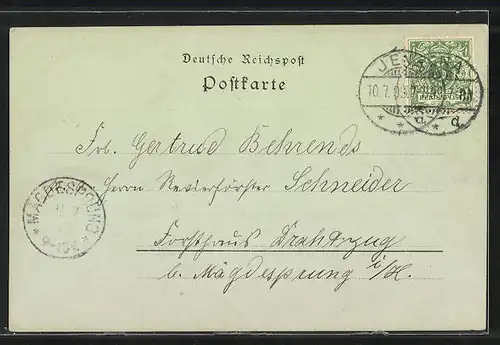 Deutsche Reichspost
Postkarte
JENA
10.7.
Frl. Gertrud Behrends
Herrn Revierförster Schneider
Forsthaus Drahtzug
b. Mägdesprung i/H.
MÄGDESPRUNG